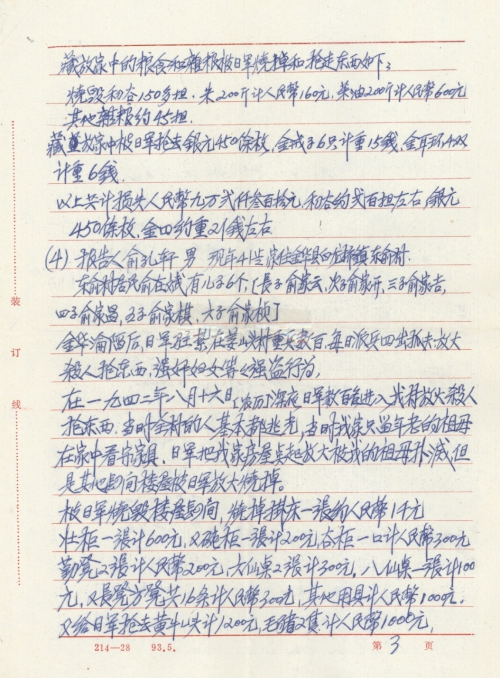 藏放家中的粮食和杂粮被日军烧掉和抢走东西如下:
烧毁和谷150多担. 米200斤计人民币160元, 菜油200斤计人民币600元
其他杂粮约45担.
藏放家中被日军抢去银元450余枚, 金戒子6只计重15钱, 金耳环4双
计重6钱.
以上共计损失人民币九万弍仟叁百拾元, 和谷约弍百担左右, 银元
450余枚. 金四约重21钱左右
(4) 报告人俞孔轩 男 现年41岁家住金华县白龙桥镇东俞村.
东俞村居民俞在城有儿子6个, [长子俞家云, 次子俞家开, 三子俞家吉,
四子俞家昌, 五子俞家棋, 六子俞家桢]
金华沦陷后, 日军驻扎在 村 数百, 每日派兵四出抓夫放火
杀人抢东西, 强奸妇女等々强盗行为.
在一九四二年八月十六日(农历)深夜日军数百名进入我村放火杀人
抢东西, 当时全村的人基本都逃光, 当时我家只留年老的祖母
在家中看守家具. 日军把我家房屋点起放火被我的祖母扑灭, 但
是其他 间楼屋被日军放火烧掉。
被日军烧毁楼屋 间, 烧掉 床一张约人民币1千元
壮柜一张计600元, 又碗柜一张计200元, 谷柜一口计人民币300元
勤凳2张计人民币200元, 大仙桌2张计300元, 八仙桌一张计100
元, 又长凳方凳共16条计人民币300元, 其他用具计人民币1000元.
又给日军抢去黄牛1头计1200元, 毛猪2只计人民币1000元,
214—28 93.5.
第 3 页
装
订
线